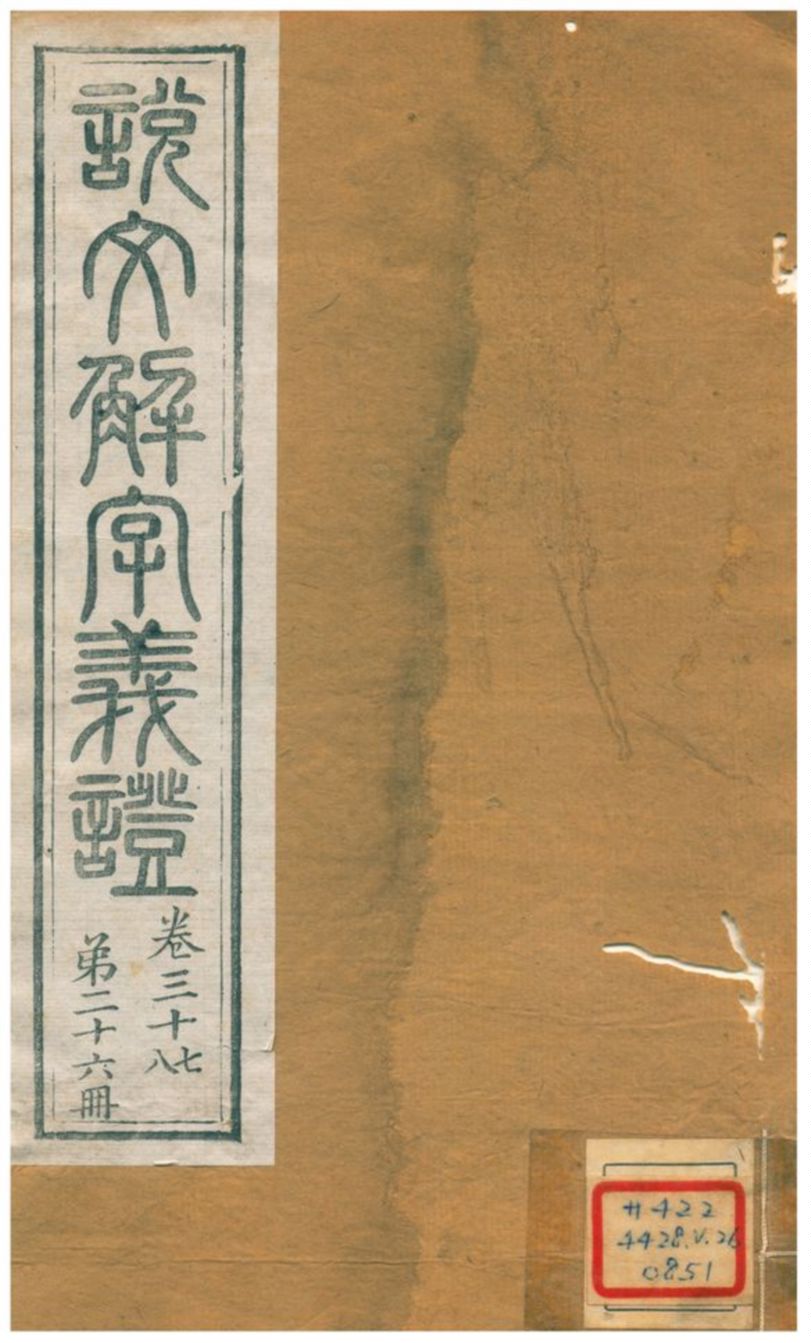 說文解字義證
卷三十七八
第二十六冊
H422
4428.V.26
0851